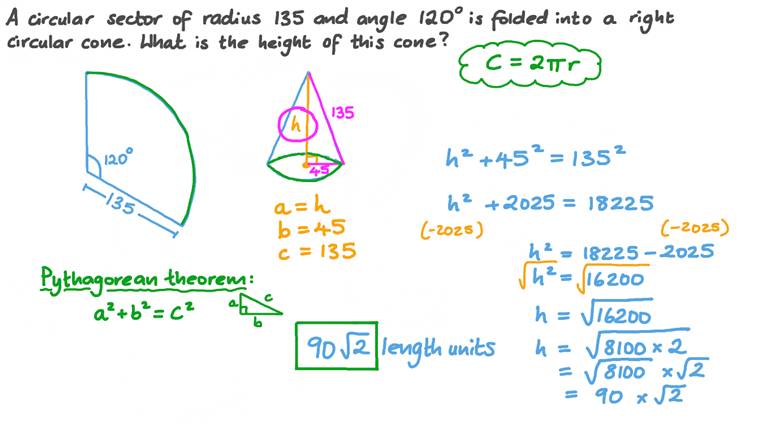 A circular sector of radius 135 and angle 120° is folded into a right
circular cone. What is the height of this cone?
C = 2πr
120°
135
h
135
45
a = h
b = 45
c = 135
Pythagorean theorem:
a² + b² = c²
a
c
b
90√2 length units
h² + 45² = 135²
h² + 2025 = 18225
(-2025) (-2025)
h² = 18225 - 2025
√h² = √16200
h = √16200
h = √8100 × 2
= √8100 × √2
= 90 × √2